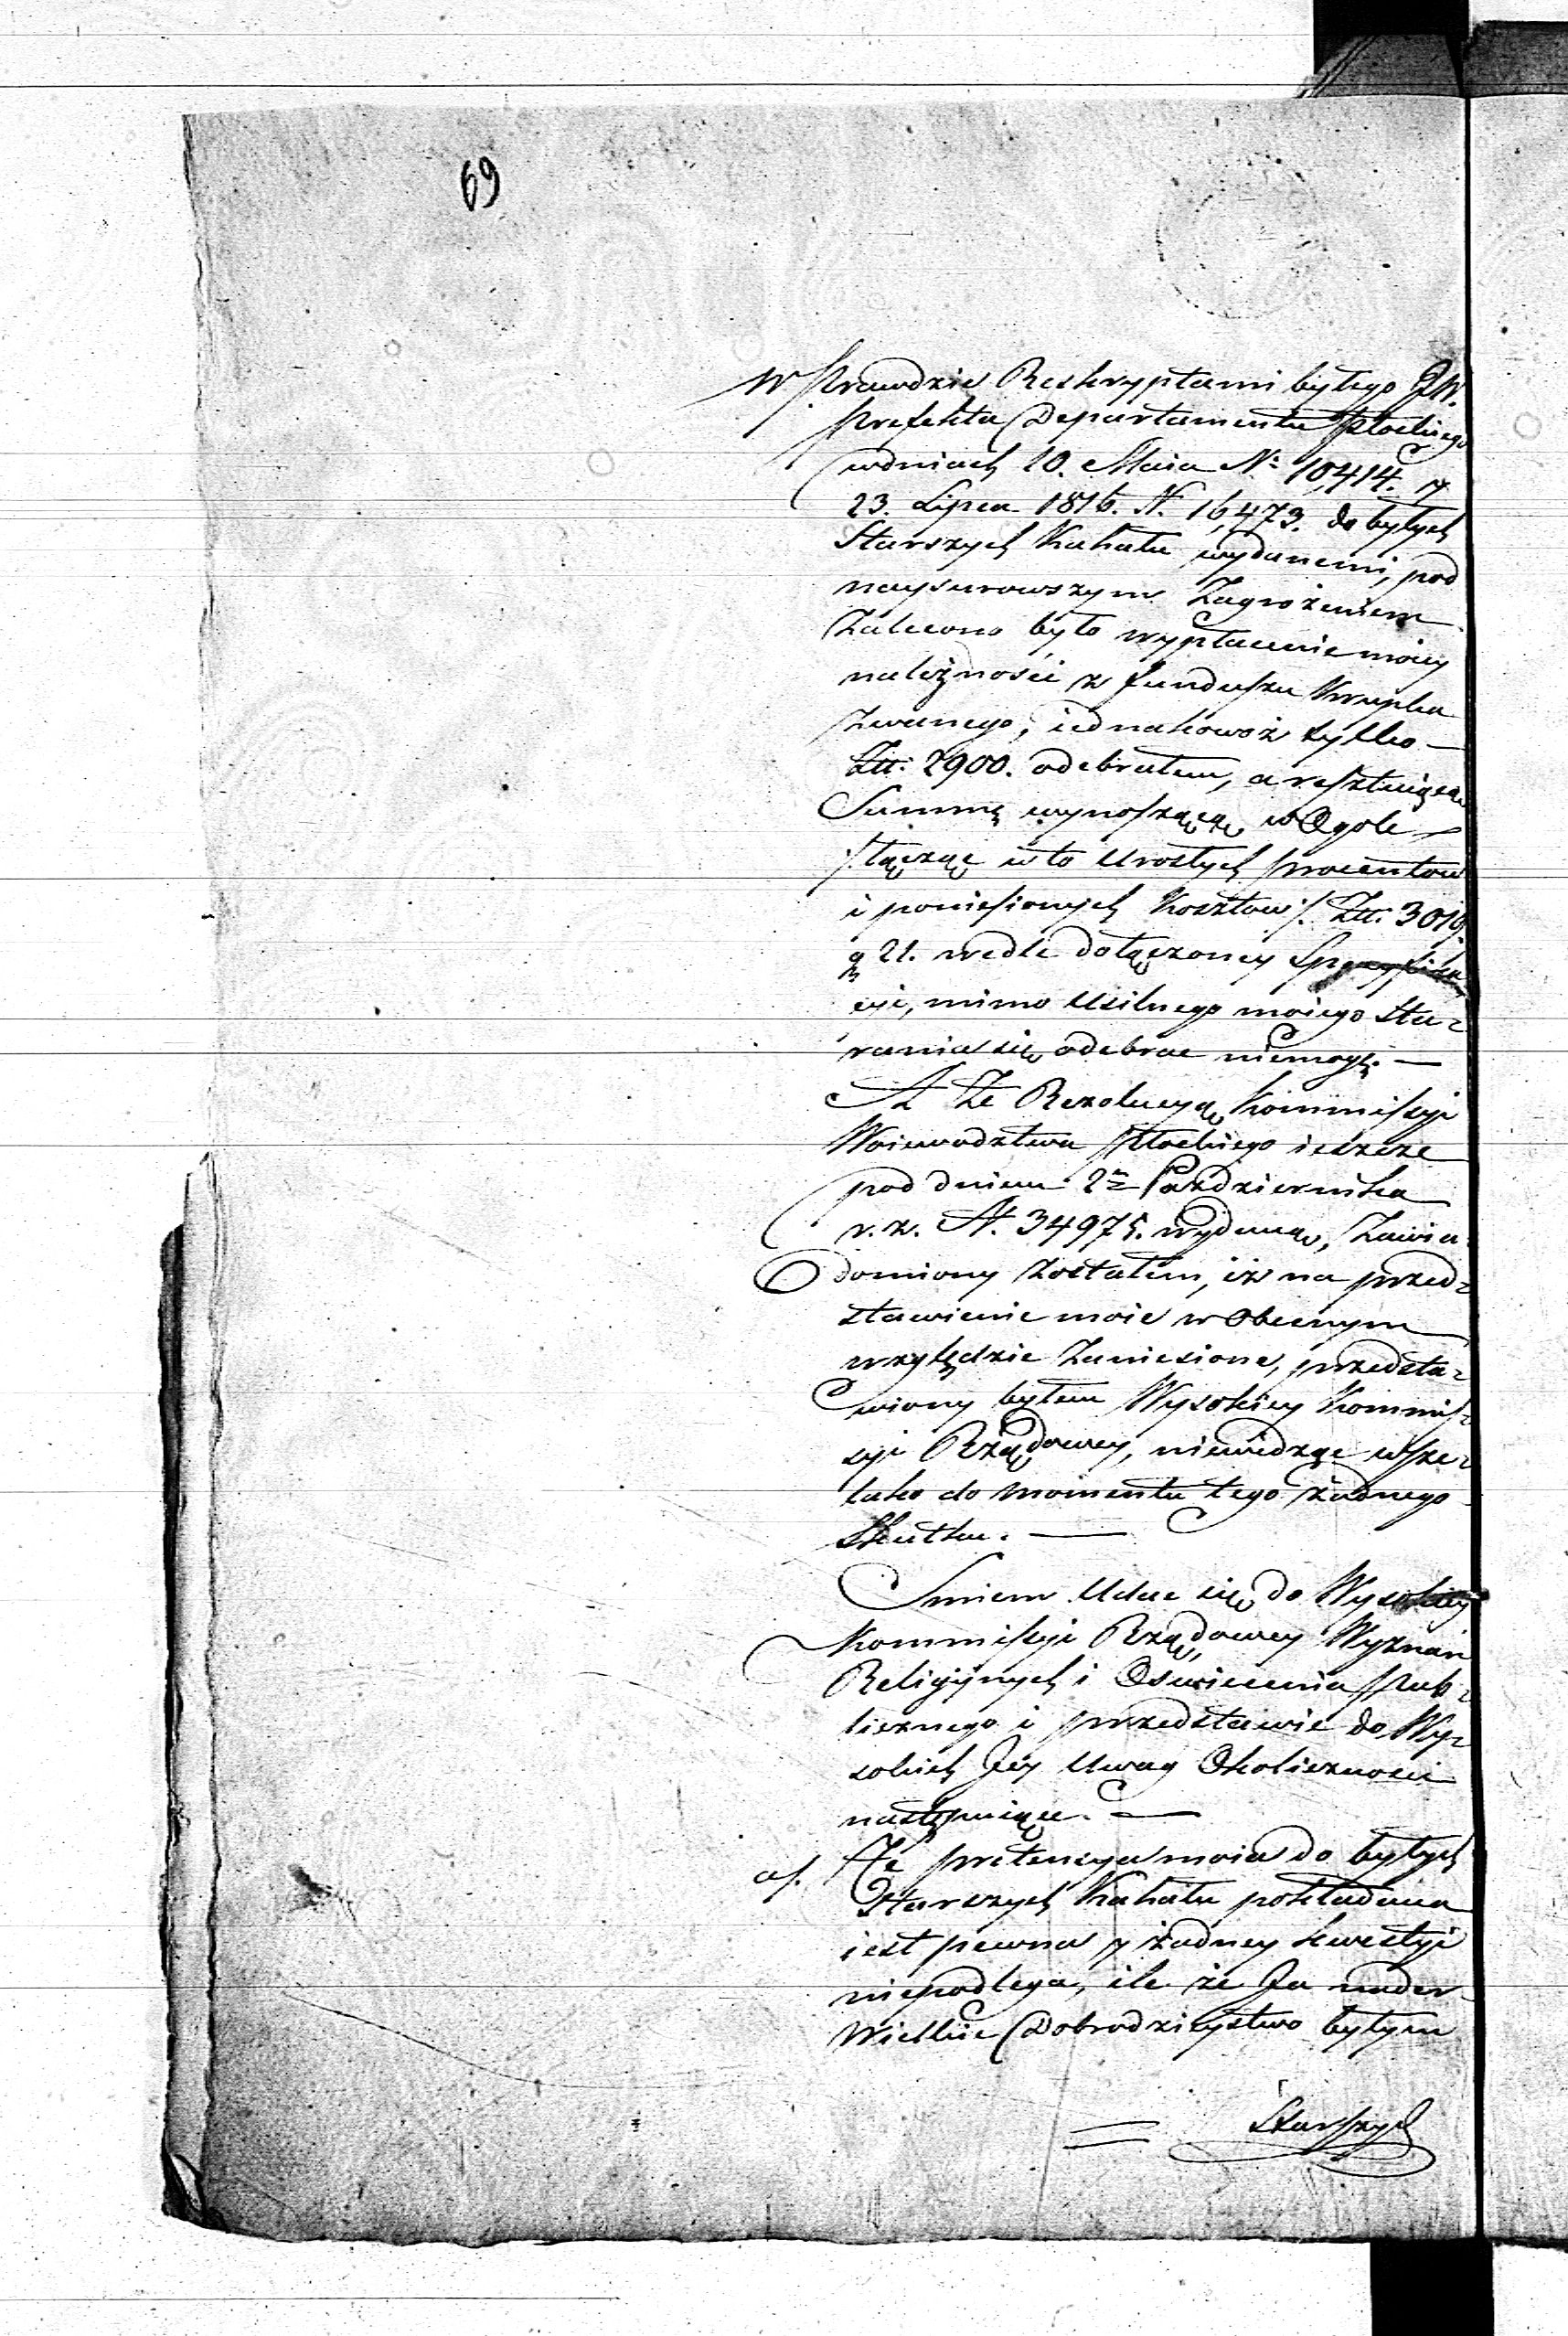 69
W prawdzie Reskryptami byłego JW.
Prefekta Departamentu Płockiego
wdniach 10. Maia N: 10,414. y
23. Lipca 1816. N. 16,473. do byłych
Starszych Kahału wydanemi, pod
naysurowszym Zagrożeniem
Zalecono było wypłacenie moiey
należności z funduszu Krupka
Zwanego, iednakowoż tylko —
Złt: 2900. odebrałem, a resztuiącą
Summę wynoszącą w Ogole
/: łącząc w to Urosłych procentow
i poniesionych Kosztow :/ Złt. 3019.
g 21. wedle dołączoney Specyfika
cyi, mimo Usilnego moiego sta=
rania się odebrac niemogę. —
A Ze Rezolucyą Kommissyi
Woiewodztwa Płockiego ieszcze
pod dniem 2 Października
r. z. N. 34975. wydaną, Zawia
domiony zostałem, iż na przed=
stawienie moie w Obecnym
względzie Zaniesione, przedsta=
wiony byłem Wysokiey Kommis=
syi Rządowey, niewidząc wsze=
lako do momentu tego żadnego
Skutku. —
Smiem Udac się do Wysokiey
Kommissyi Rządowey Wyznań
Religiynych i Oswiecenia Pub=
licznego i przedstawic do Wy=
sokich Jey Uwag Okolicznosci
następuiące. —
a/. Że pretensya moia do byłych
Starszych Kahału pokładana
iest pewna y żadney kwestyi
niepodlega, ile że Ja nader
Wielkie Dobrodzieystwo byłym
Starszych